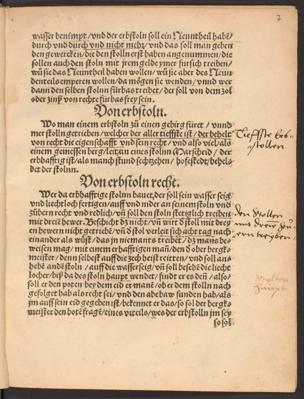 wasser benimpt / vnd der erbstoln soll ein Neuntheil habē
durch vnd durch vnd nicht mehr / vnd das soll man geben
den gewercken / die den stolln erst haben angenummen / die
sollen auch den stoln mit jrem gelde ymer fur sich treiben /
wü sie das Neuntheil haben wollen / wü sie aber des Neun
denteils emperen wollen / da mögen sie wenden / vnnd wer
dann den selben stolnn fürbas treibet / der soll von dem zol
oder zinß von rechte für bas frey sein.
Von erbstoln.
Wo man einem erbstoln zü einen gebirg füret / vnnd
mer stolln getrieben / welcher der aller tieffste ist / der behelt
von recht die eigenschafft vnd sein recht / vnd also viel / als
einem gemessen berg / lehen eines Marscheid / der
erbhafftig ist / als manch stund sechtzehen / hofestedt / behel-
det der stolnn.
Von erbstoln recht.
Wer da erbhafftige stolnn hauet / der soll sein wasser seig
vnd liechtloch fertigen / auff vnd nider an seinem stoln vnd
zübern recht vnd redlich / vñ soll den stoln stetiglich treiben
mit dreiē hewer. Beschicht dz nicht / vñ würt d stoll mit drey
en hewern nicht getriebē / vñ d stol verleit sich acht tag nach
einander als wüst / das jn niemants treibet / dz mans be-
weisen mag / mit einem erhafftigen mañ / den d oder bergk-
meister / denn selbest auff die zech heist reitten / vnd soll an-
hebē andē stoln / auff die wasserseig / vñ soll besehē die liecht
locher / biß da des stoln haupt wendet / findt er es den / also /
soll er den poten bey dem eid er manē / ob er dem stolln nach
gefolget hab als recht sei / vnd den abebaw funden hab / als
jm auff sein eid gegeben ist / bekennet er das / so sol der bergk-
meister den botē fragē / eins vrteils / wes der erbstolln im sey
so sol
Tieffste Erb-
stollen
Den Stollen